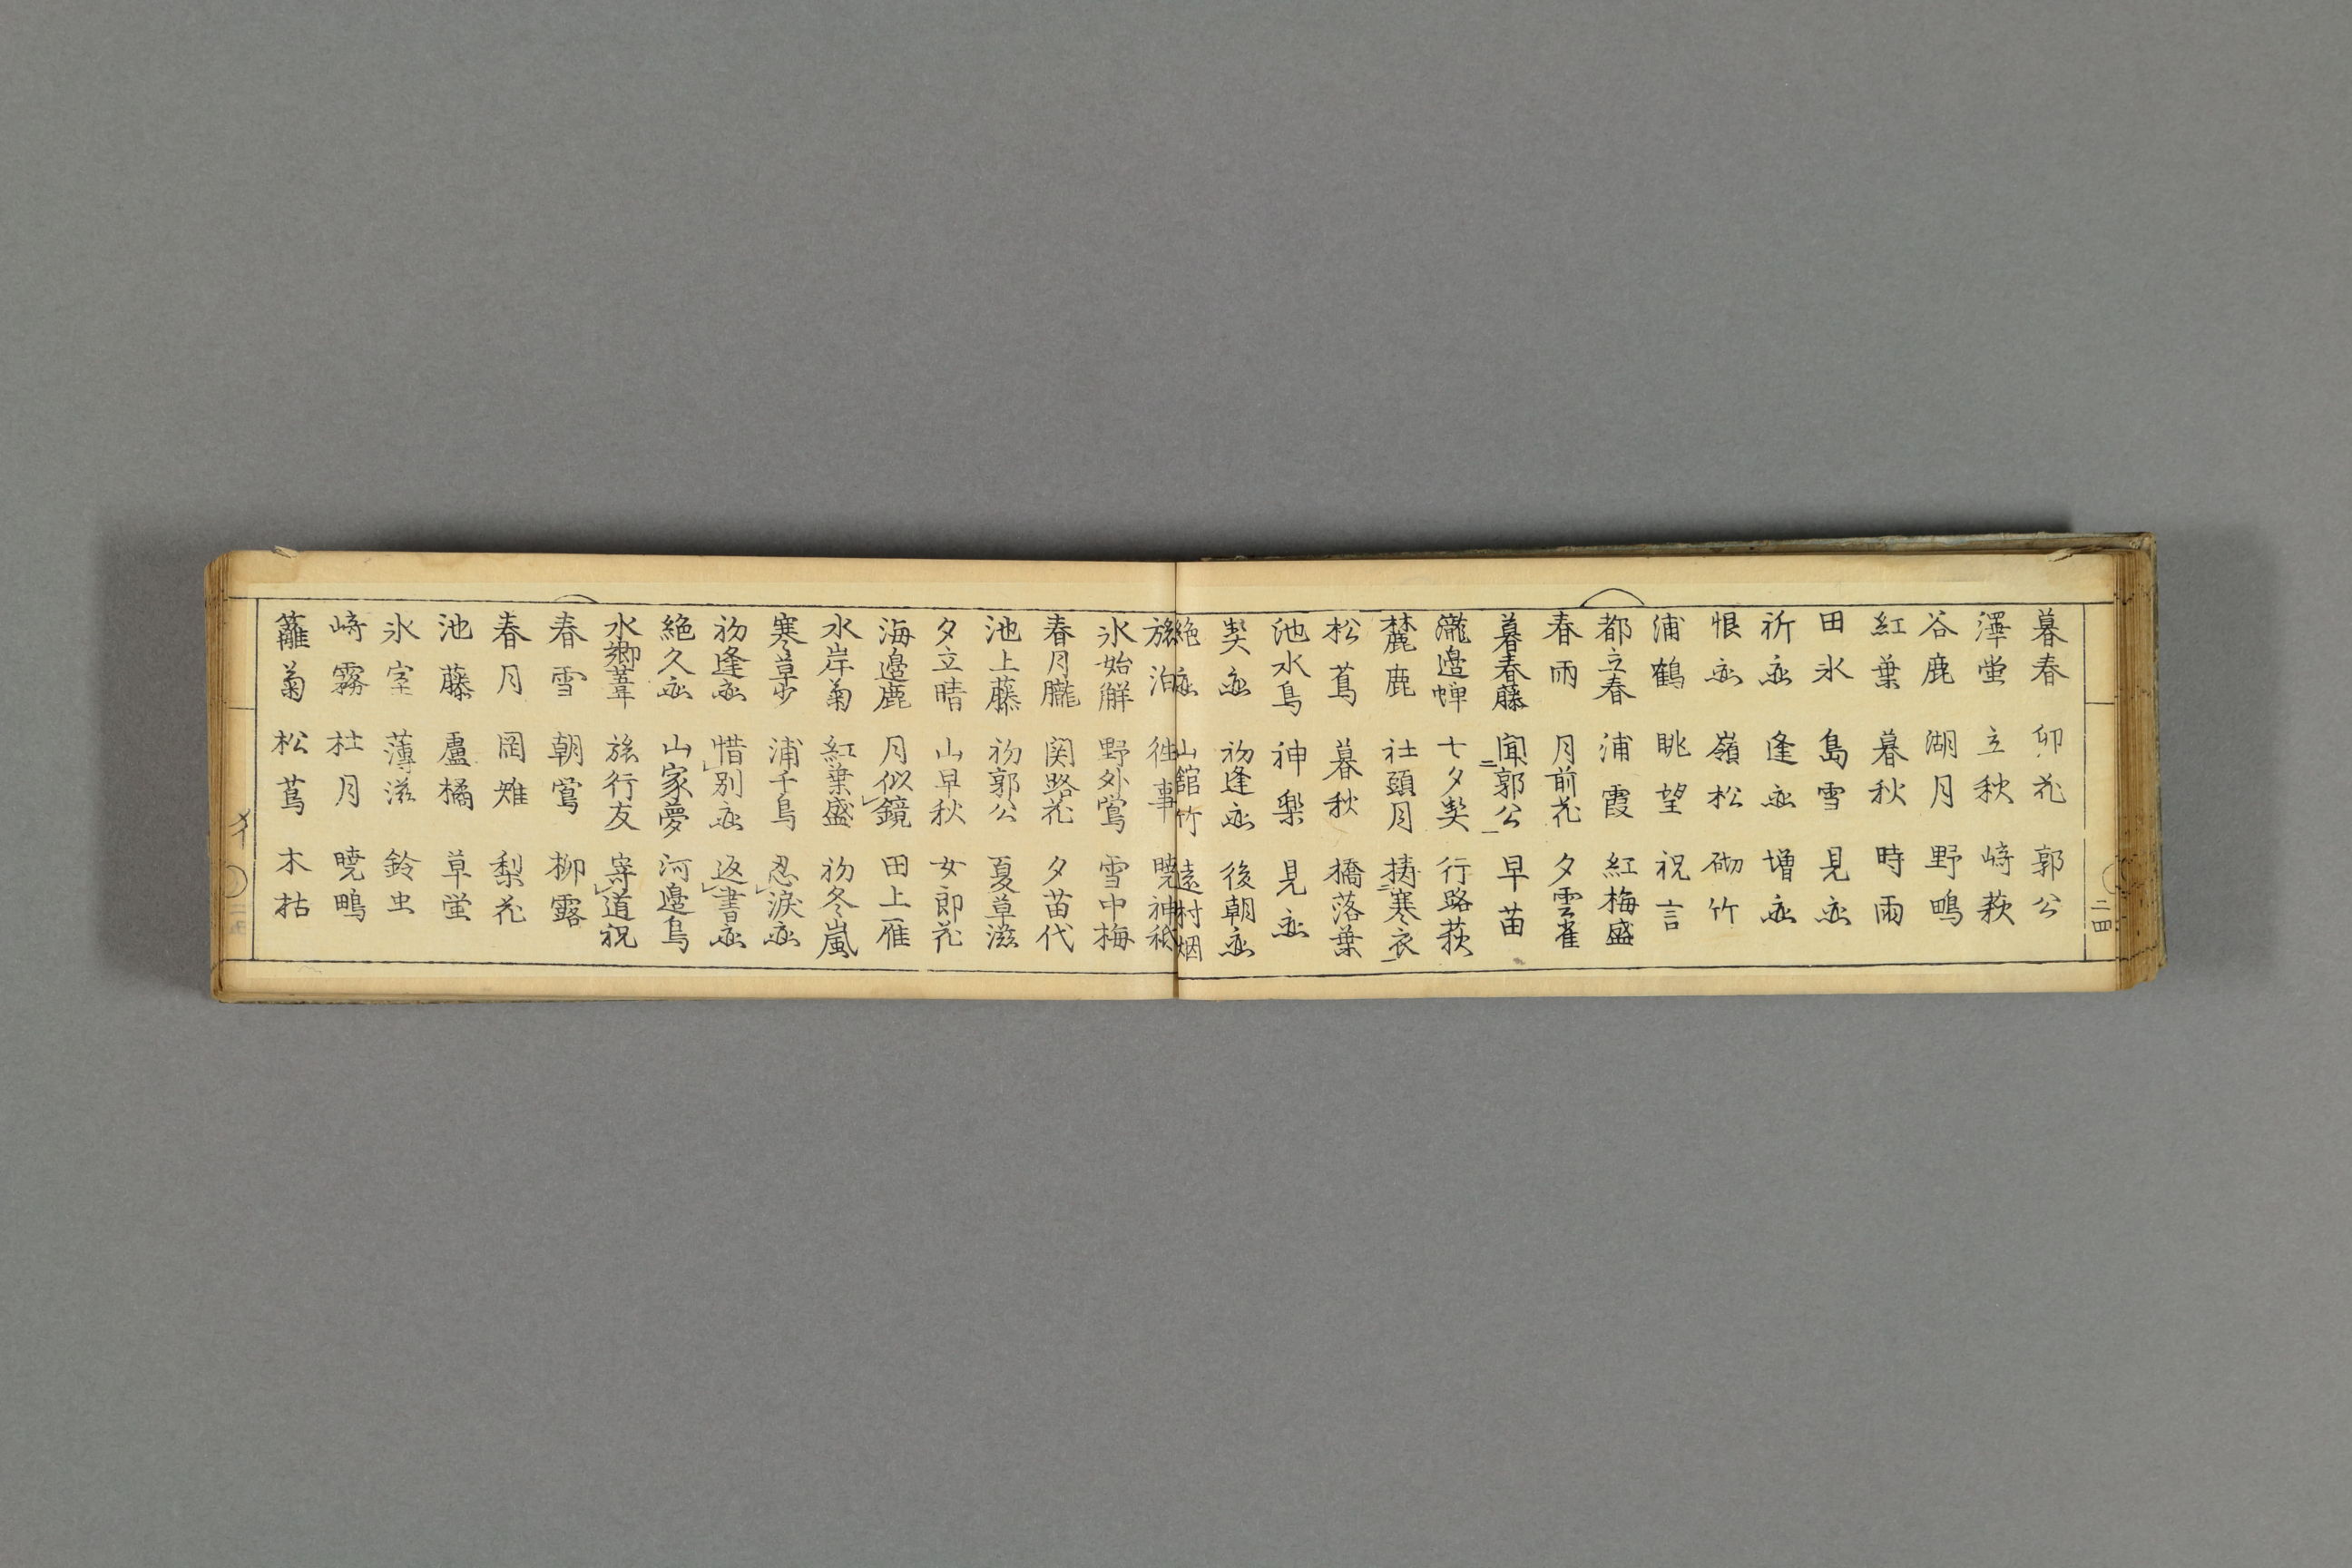 暮春 卯花 郭公
澤蛍 立秋 崎萩
谷鹿 湖月 野鴫
紅葉 暮秋 時雨
田氷 島雪 見恋
祈恋 逢恋 増恋
恨恋 嶺松 砌竹
浦鶴 眺望 祝言
都立春 浦霞 紅梅盛
春雨 月前花 夕雲雀
暮春藤 聞郭公 早苗
瀧邉蝉 七夕契 行路萩
麓鹿 社頭月 擣寒衣
松蔦 暮秋 橋落葉
池水鳥 神楽 見恋
契恋 初逢恋 後朝恋
絶恋 山館竹 遠村烟
旅泊 往事 暁神祇
氷始解 野外鴬 雪中梅
春月朧 関路花 夕苗代
池上藤 初郭公 夏草滋
夕立晴 山早秋 女郎花
海邉鹿 月似鏡 田上雁
水岸菊 紅葉盛 初冬嵐
寒草少 浦千鳥 忍涙恋
初逢恋 惜別恋 返書恋
絶久恋 山家夢 河邉鳥
水郷葦 旅行友 寄道祝
春雪 朝鴬 柳露
春月 岡雉 梨花
池藤 盧橘 草蛍
氷室 薄滋 鈴虫
崎霧 杜月 暁鴫
籬菊 松蔦 木枯
二四